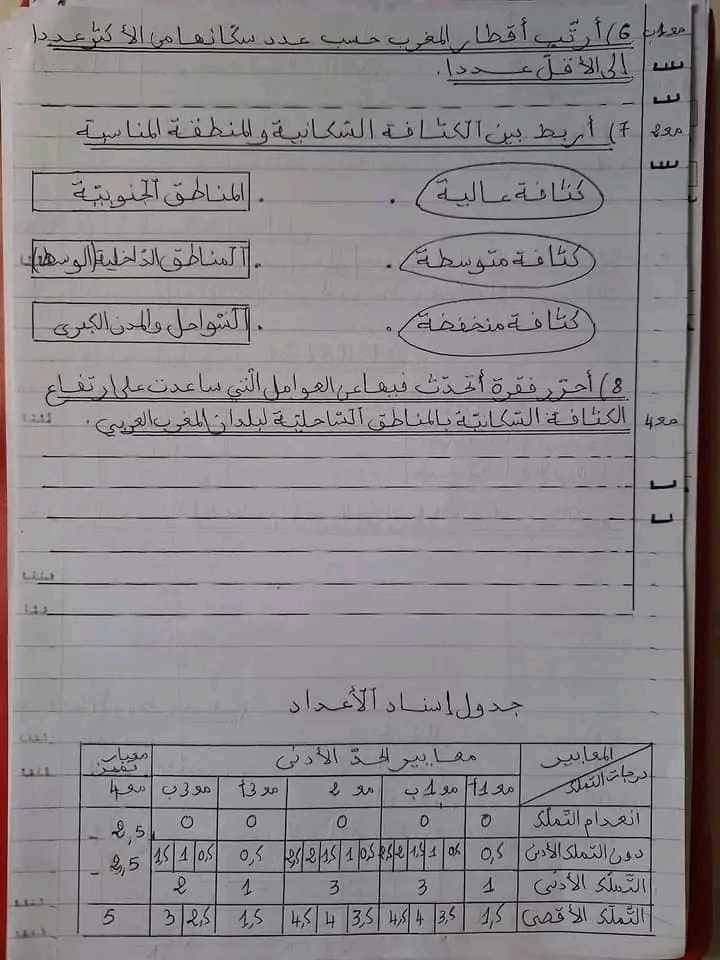 مع1ب 6) أرتّب أقطار المغرب حسب عدد سكانها من الأكثر عددا
إلى الأقلّ عددا.
مع2 7) أربط بين الكثافة السّكانية والمنطقة المناسبة
كثافة عالية . . المناطق الجنوبيّة
كثافة متوسطة . . المناطق الدّاخلية (الوسطى)
كثافة منخفضة . . السّواحل والمدن الكبرى
8) أحرّر فقرة أتحدّث فيها عن العوامل الّتي ساعدت على ارتفاع
مع4 الكثافة السّكانيّة بالمناطق السّاحليّة لبلدان المغرب العربي.
جدول إسناد الأعداد
المعايير معايير الحدّ الأدنى معيار تميّز
درجات التملّك مع1أ مع1ب مع2 مع3أ مع3ب مع4
انعدام التّملّك 0 0 0 0 0
دون التملك الأدنى 0,5 0,5 1 1,5 2 2,5 0,5 1 1,5 2 2,5 0,5 0,5 1 1,5
2,5
2,5
التّملّك الأدنى 1 3 3 1 2
التّملّك الأقصى 1,5 3,5 4 4,5 3,5 4 4,5 1,5 2,5 3 5